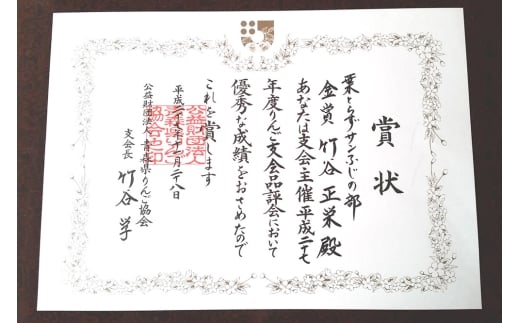 賞状
葉とらずサンふじの部
金賞 竹谷正栄殿
あなたは支会主催平成二十七
年度りんご支会品評会において
優秀な成績をおさめたので
これを賞します
平成二十七年十一月二十八日
公益財団法人青森県りんご協会
支会長 竹谷学